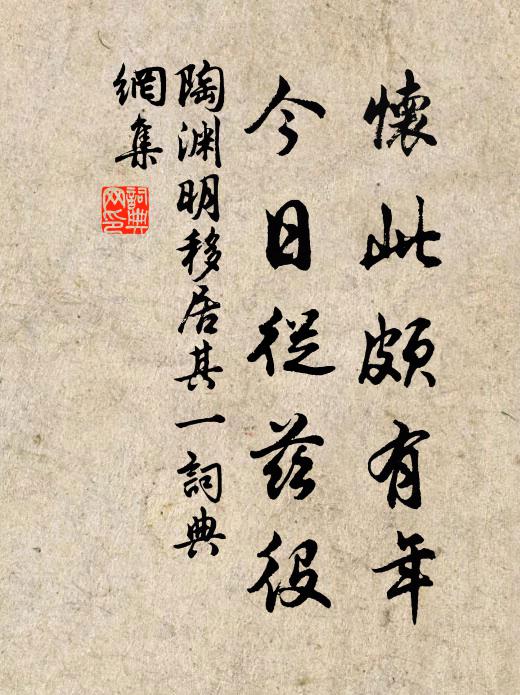 懷此頗有年
今日從茲役
陶渊明移居其一詞典
網集
詞典
网印